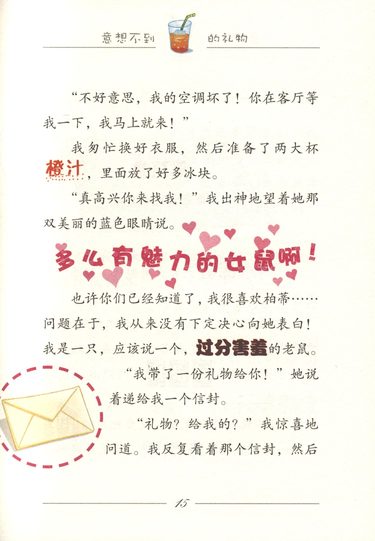 意想不到的礼物
“不好意思，我的空调坏了！你在客厅等
我一下，我马上就来！”
我匆忙换好衣服，然后准备了两大杯
橙汁，里面放了好多冰块。
“真高兴你来找我！”我出神地望着她那
双美丽的蓝色眼睛说。
多么有魅力的女鼠啊！
也许你们已经知道了，我很喜欢柏蒂……
问题在于，我从来没有下定决心向她表白！
我是一只，应该说一个，过分害羞的老鼠。
“我带了一份礼物给你！”她说
着递给我一个信封。
“礼物？给我的？”我惊喜地
问道。我反复看着那个信封，然后
15